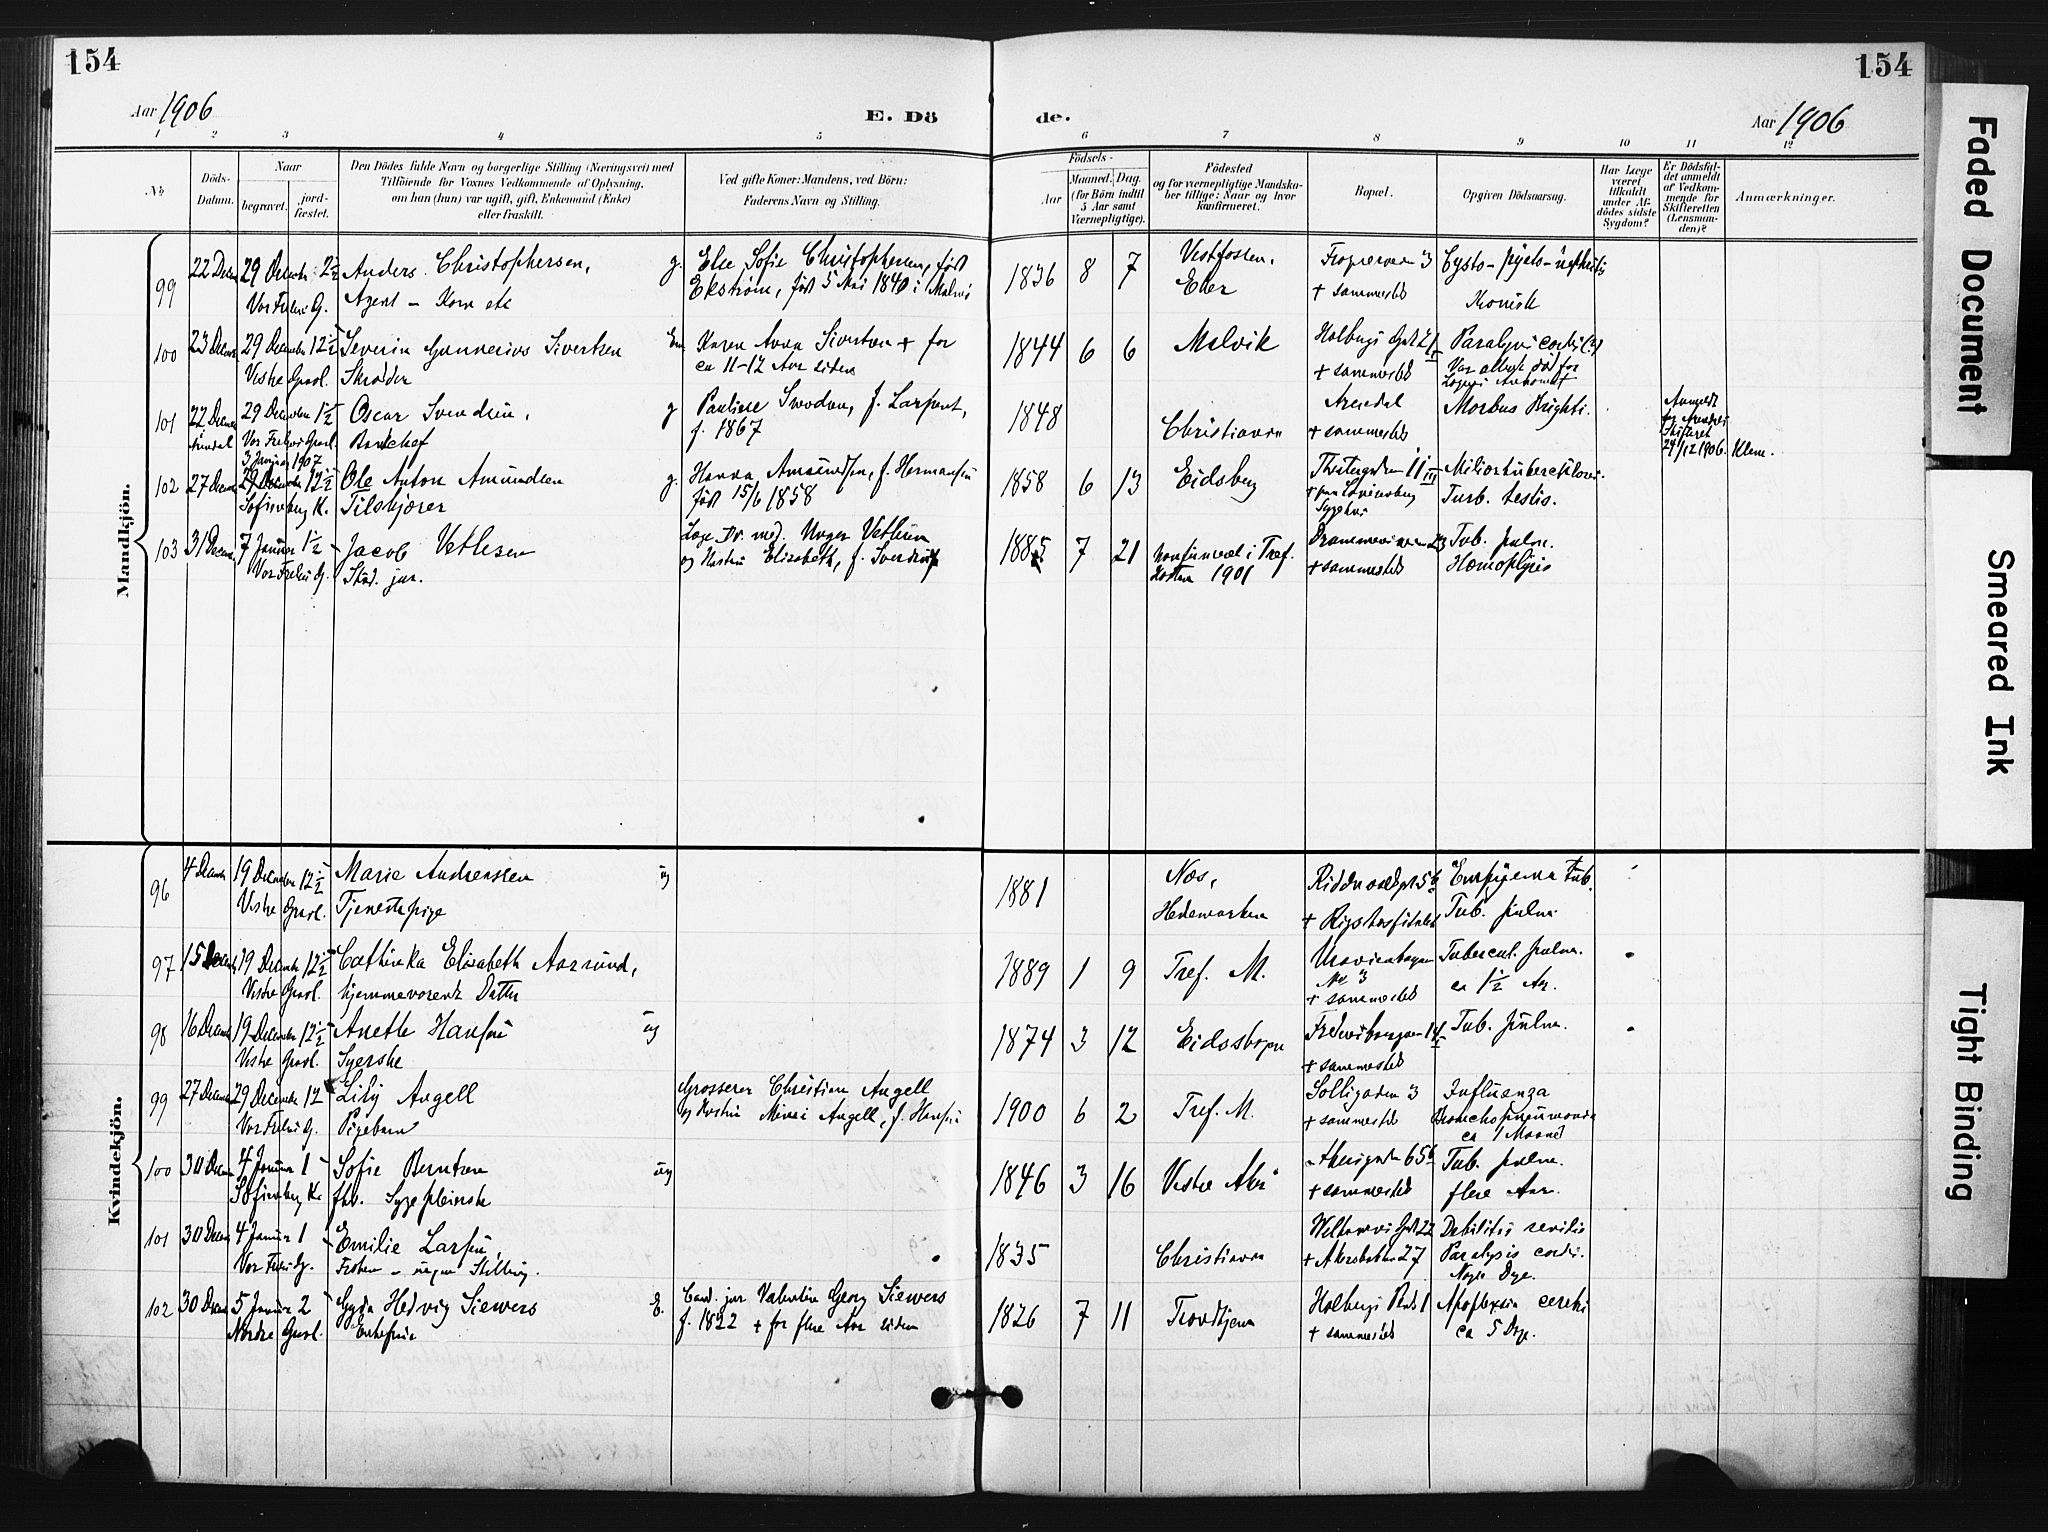 154
154
Aar 1906
E. Dö
de.
Aar 1906
1 2 3 4 5 6 7 8 9 10 11 12
No.
Döds-Datum.
Naar
begravet.
jord-fæstet.
Den Dödes fulde Navn og borgerlige Stilling (Næringsvei) med
Tilföiende for Voxnes Vedkommende af Oplysning,
om han (hun) var ugift, gift, Enkemand (Enke)
eller fraskilt.
Ved gifte Koner: Mandens, ved Börn:
Faderens Navn og Stilling.
Födsels-
Aar
Maaned. Dag.
(for Börn indtil
5 Aar samt
Værnepligtige).
Födested
og for værnepligtige Mandska-
ber tillige: Naar og hvor
konfirmeret.
Bopæl.
Opgiven Dödsaarsag.
Har Læge
været
tilkaldt
under Af-
dödes sidste
Sygdom?
Er Dödsfal-
det anmeldt
af Vedkom-
mende for
Skifteretten
(Lensman-
den)?
Anmærkninger.
Mandkjön.
99 22 Decem 29 December 2 1/2 Anders Christophersen, g. Else Sofie Christophersen, født 1836 8 7 Vestfossen, 3
Vor Frelsers G. Agent – Korn etc Ekström, født 5 Mai 1840 i Malmö Eker + sammesteds Kronisk
100 23 Decem 29 December 12 1/2 Severin Gunnerius Sivertsen Em Karen Anna Sivertsen + for 1844 6 6 Malvik Holbergs Gade 21 Paralysis cordis (?)
Vestre Gravl. Skrædder ca 11-12 Aar siden + sammesteds Var allerede død før
Lægens Ankomst
101 22 Decem 29 December 1 1/2 Oscar Svendsen, g Pauline Svendsen, f. Larsen, 1848 Christiania Arendal Morbus Brighti.
Arendal Vor Frelsers Gravl. f. 1867 + sammesteds
Anmeldt
Skifteret
24/12 1906.
3 Januar 1907
102 27 Decem 29 December 12 1/2 Ole Anton Amundsen g. Hanna Amundsen, f. Hermansen 1858 6 13 Eidsberg 11 III Miliærtuberculose.
Sofienberg K. Tilskjærer født 15/6 1858 Sygehus Tub. testis.
103 31 Decem 7 Januar 1 1/2 Jacob Vetlesen Læge Dr. med. Unger Vetlesen 1885 7 21 konfirmeret i Tref. Drammensveien 23 Tub. pulm.
Vor Frelsers G. Stud. jur. og Hustru Elisabeth, f. Sverdrup 1901 + sammesteds Hæmoptysis
Kvindekjön.
96 4 Decem 19 December 12 1/2 Marie Andreassen ug 1881 Nes, Empyema tub.
Vestre Gravl. Tjenestepige Hedemarken + Rigshospitalet Tub. pulm.
97 15 Decem 19 December 12 1/2 Cathinka Elisabeth Aasrund, 1889 1 9 Tref. M. Uranienborgv. Tubercul. pulm.
Vestre Gravl. hjemmeværende Datter No 3 ca 1 1/2 Aar.
+ sammesteds
98 16 Decem 19 December 12 1/2 Anette Hansen ug 1874 3 12 Eidskogen Tub. pulm.
Vestre Gravl. Syerske + sammesteds
99 27 Decem 29 December 12 Lily Angell Grosserer Christian Angell 1900 6 2 Tref. M. Solligaden 3 Influenza
Vor Frelsers G. Pigebarn og Hustru Minni Angell, f. Hansen + sammesteds Bronchopneumonia
ca 1 Maaned
100 30 Decem 4 Januar 1 Sofie Berntsen ug 1846 3 16 Vestre Aker Akersgaden 65 b Tub. pulm.
Sofienberg K. fhv. Sygepleierske + sammesteds flere Aar.
101 30 Decem 4 Januar 1 Emilie Larsen, 1835 Christiania Welhavens Gade 22 Debilitas senilis
Vor Frelsers G. Frøken – ingen Stilling. + Akersbakken 27 Paralysis cordis.
Nogle Dage.
102 30 Decem 5 Januar 2 Gyda Hedvig Siewers E. Cand. jur. Valentin Georg Siewers 1826 7 11 Trondhjem Holbergs Plads 1 Apoplexia cerebri
Nordre Gravl. Enkefrue f. 1822 + for flere Aar siden + sammesteds ca 5 Dage.
Faded Document
Smeared Ink
Tight Binding